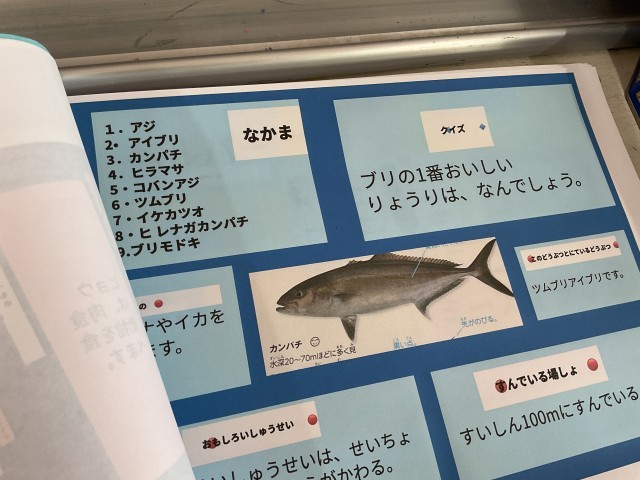 1．アジ
2・アイブリ
3．カンパチ
4．ヒラマサ
5・コバンアジ
6・ツムブリ
7・イケカツオ
8・ヒレナガカンパチ
9.ブリモドキ
なかま
クイズ
ブリの1番おいしい
りょうりは、なんでしょう。
の
ナやイカを
ます。
カンパチ
水深20～70mほどに多く見
黒い
先がのびる。
このどうぶつとにているどうぶつ
ツムブリアイブリです。
すんでいる場しょ
すいしん100mにすんでいる
おもしろいしゅうせい
いしゅうせいは、せいちょ
うがかわる。